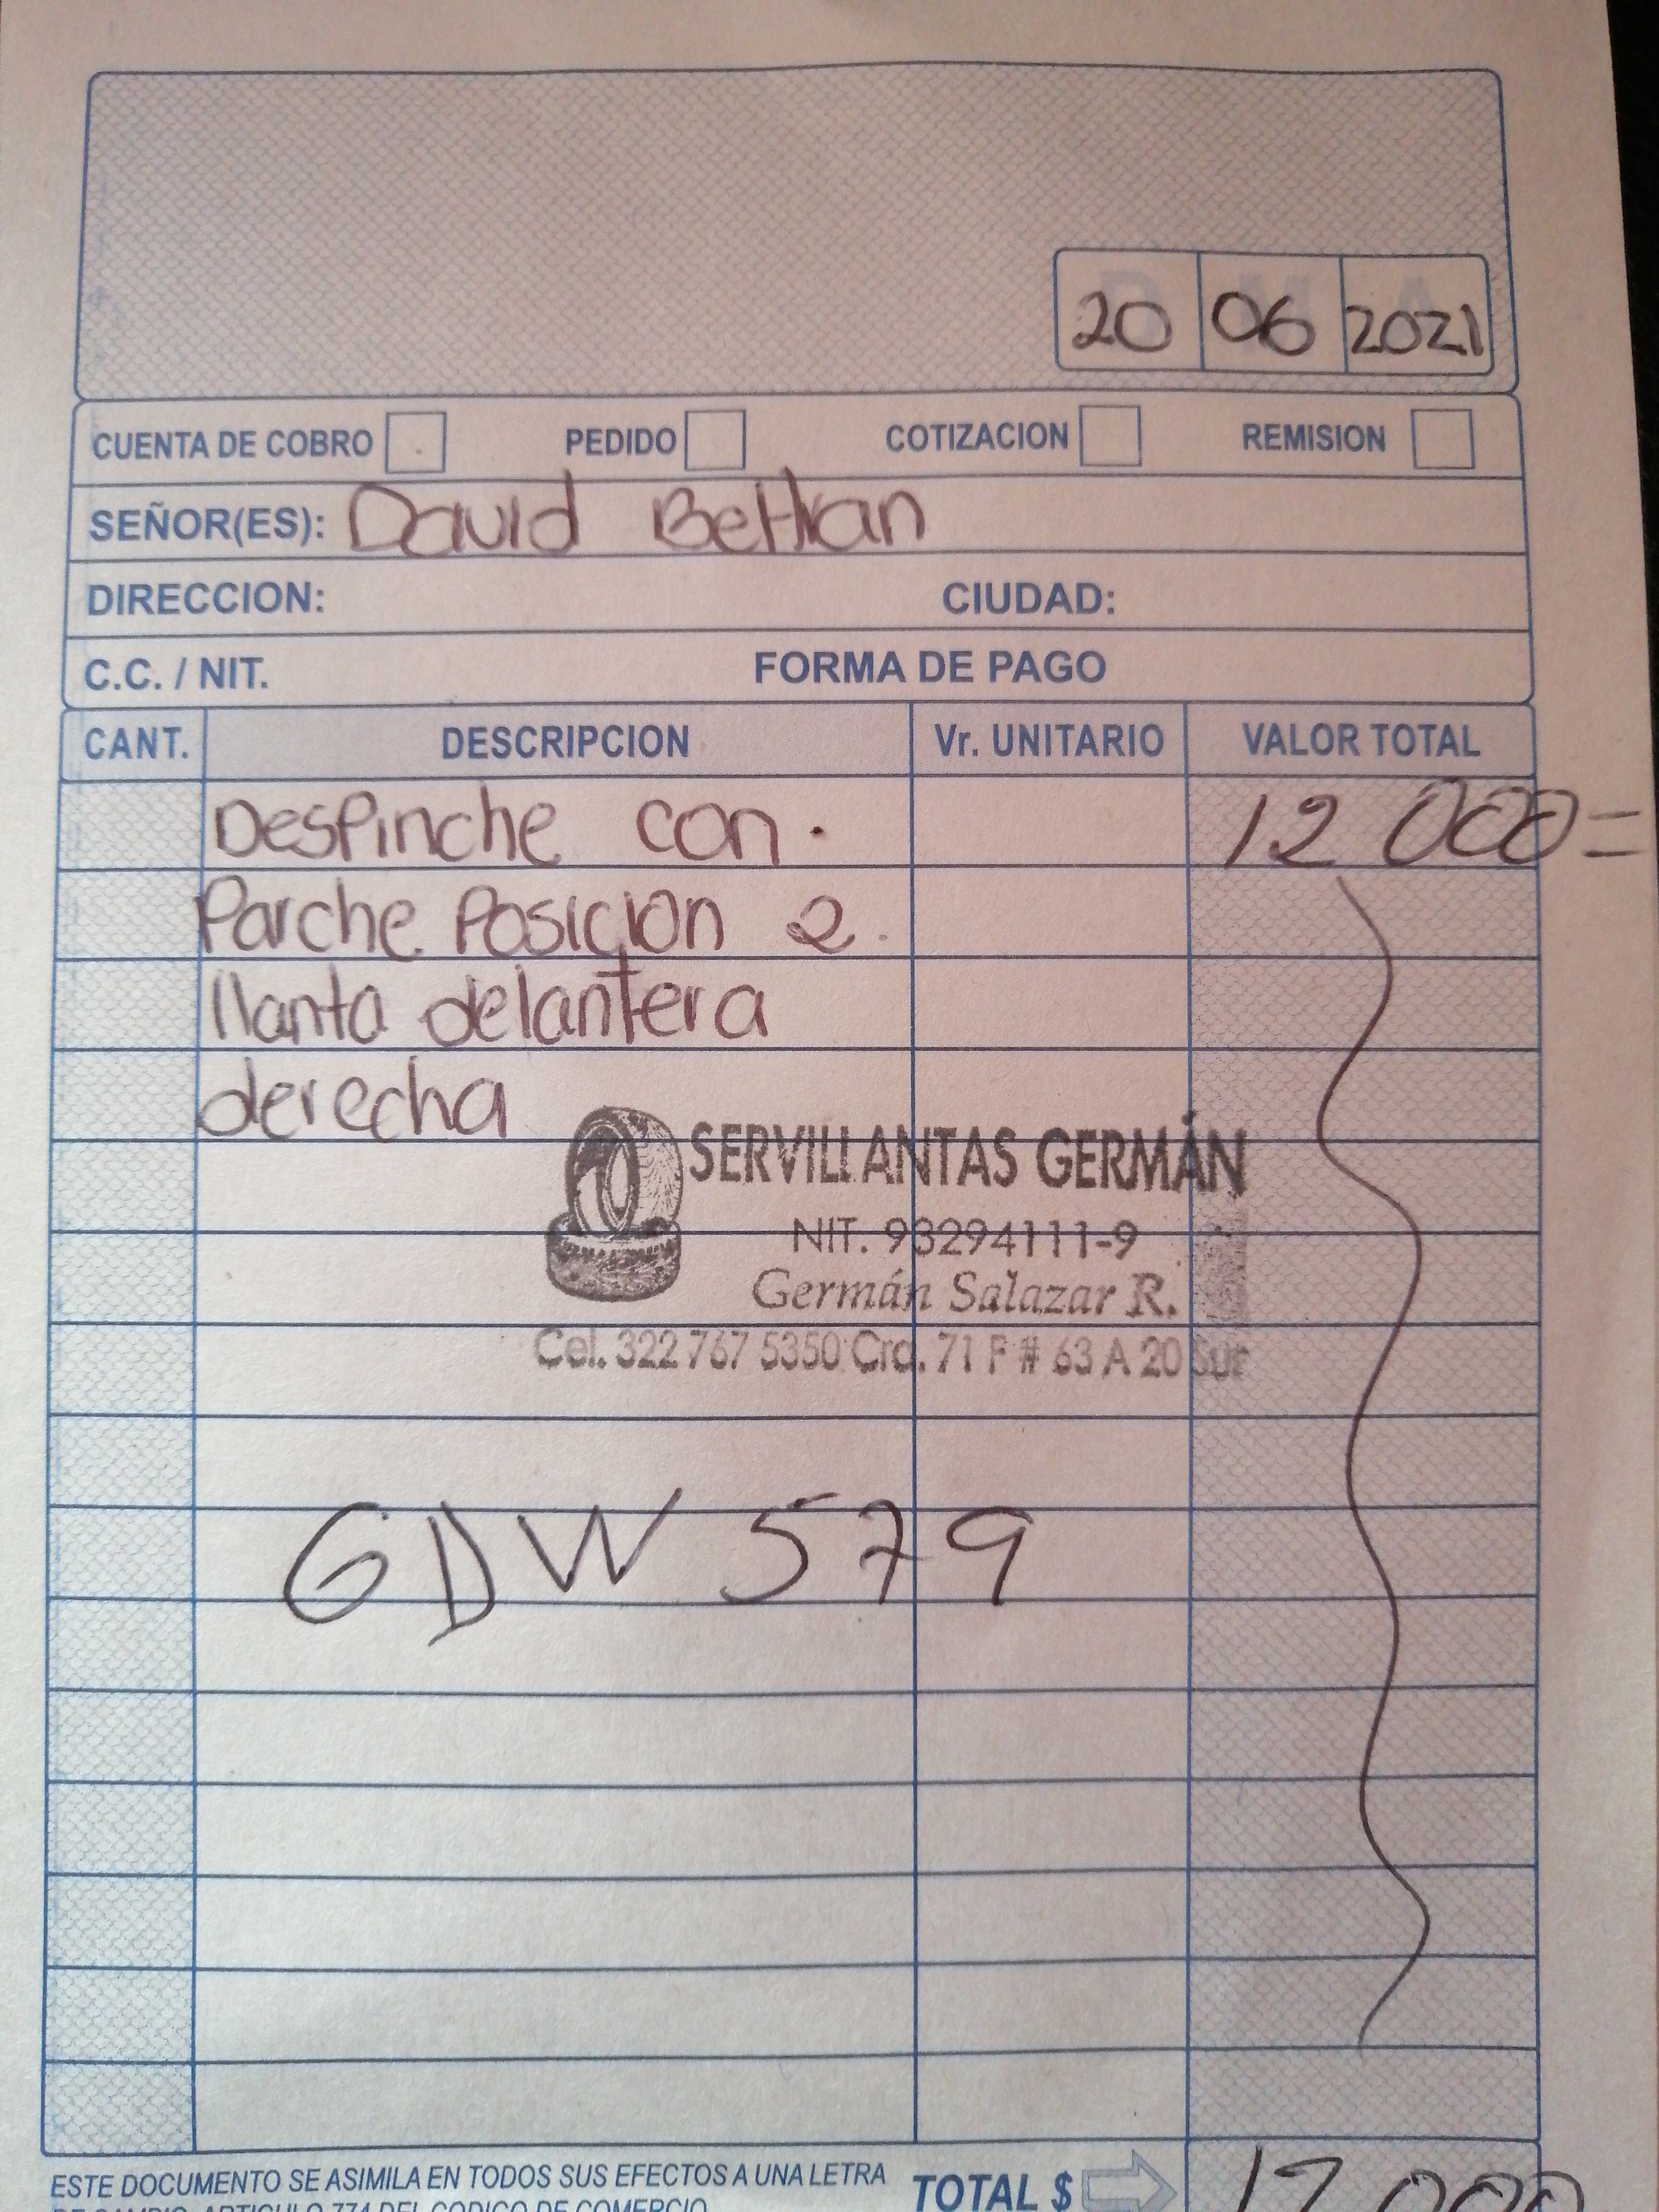 D M A
20 06 2021
CUENTA DE COBRO PEDIDO COTIZACION REMISION
SEÑOR(ES): David Beltran
DIRECCION: CIUDAD:
C.C. / NIT. FORMA DE PAGO
CANT. DESCRIPCION Vr. UNITARIO VALOR TOTAL
Despinche con. 12 000=
Parche Posicion 2.
llanta delantera
derecha
SERVILLANTAS GERMÁN
NIT. 93294111-9
Germán Salazar R.
Cel. 322 767 5350 Cra. 71 F # 63 A 20 Sur
GDW 579
ESTE DOCUMENTO SE ASIMILA EN TODOS SUS EFECTOS A UNA LETRA TOTAL $ 12 000
DE CAMBIO. ARTICULO 774 DEL CODIGO DE COMERCIO